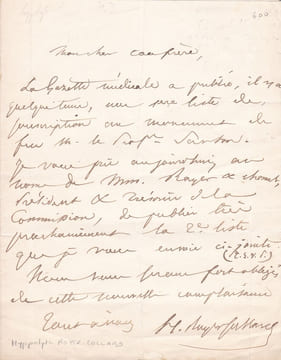 Mon cher confrère,
La Gazette médicale a publié, il y a
quelque tems, une 1ere liste de
souscription au monument de
feu M. le Profr
Je vous prie aujourd'hui au
nome de Mrs. Rayer & Chomel,
Président & Trésorier de la
Commission, de publier très
prochainement la 2e liste
que je vous envoie ci-jointe
(R.S.V.P.)
Nous vous serons fort obligés
de cette nouvelle complaisance
Tout à vous
H. Royer-Collard
Hippolyte ROYER-COLLARD
600